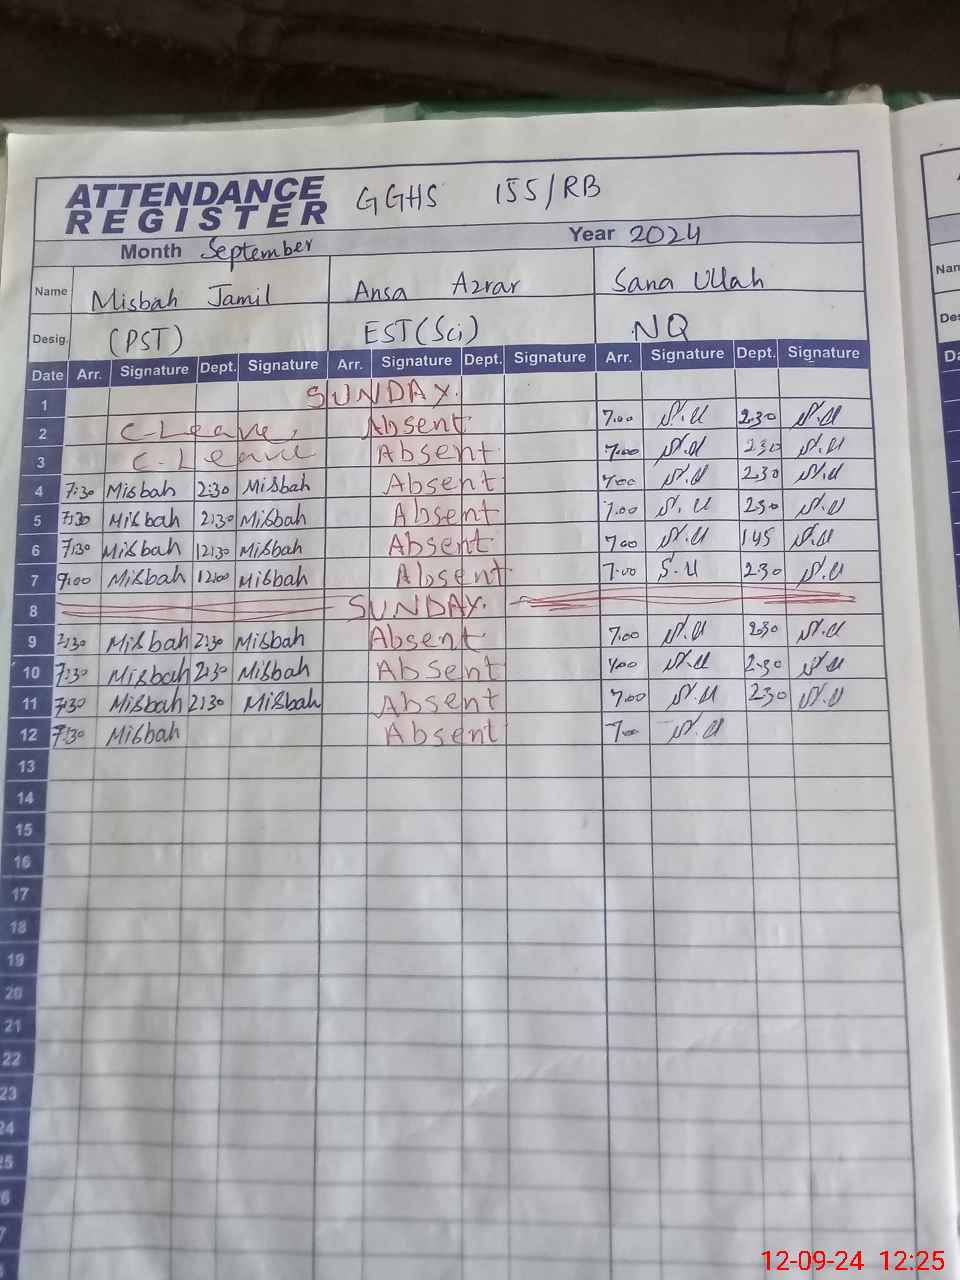 ATTENDANCE REGISTER GGHS 155/RB
Month September Year 2024
Name Misbah Jamil Ansa Azrar Sana Ullah
Desig. (PST) EST (Sci) NQ
Date Arr. Signature Dept. Signature Arr. Signature Dept. Signature Arr. Signature Dept. Signature
1 SUNDAY.
2 C-Leave. Absent 7.00 S.U 2.30 S.U
3 C.Leave Absent 7.00 S.U 2.30 S.U
4 7:30 Misbah 2:30 Misbah Absent 7.00 S.U 2.30 S.U
5 7:30 Misbah 2:30 Misbah Absent 7.00 S.U 2.30 S.U
6 7:30 Misbah 12:30 Misbah Absent 7.00 S.U 1.45 S.U
7 9:00 Misbah 12:00 Misbah Absent 7.00 S.U 2.30 S.U
8 SUNDAY.
9 Misbah 2:30 Misbah Absent 7.00 S.U 2.30 S.U
10 7:30 Misbah 2:30 Misbah Absent 7.00 S.U 2.30 S.U
11 7:30 Misbah 2:30 Misbah Absent 7.00 S.U 2.30 S.U
12 7:30 Misbah Absent 7.00 S.U
13
14
15
16
17
18
19
20
21
22
23
24
25
12-09-24 12:25